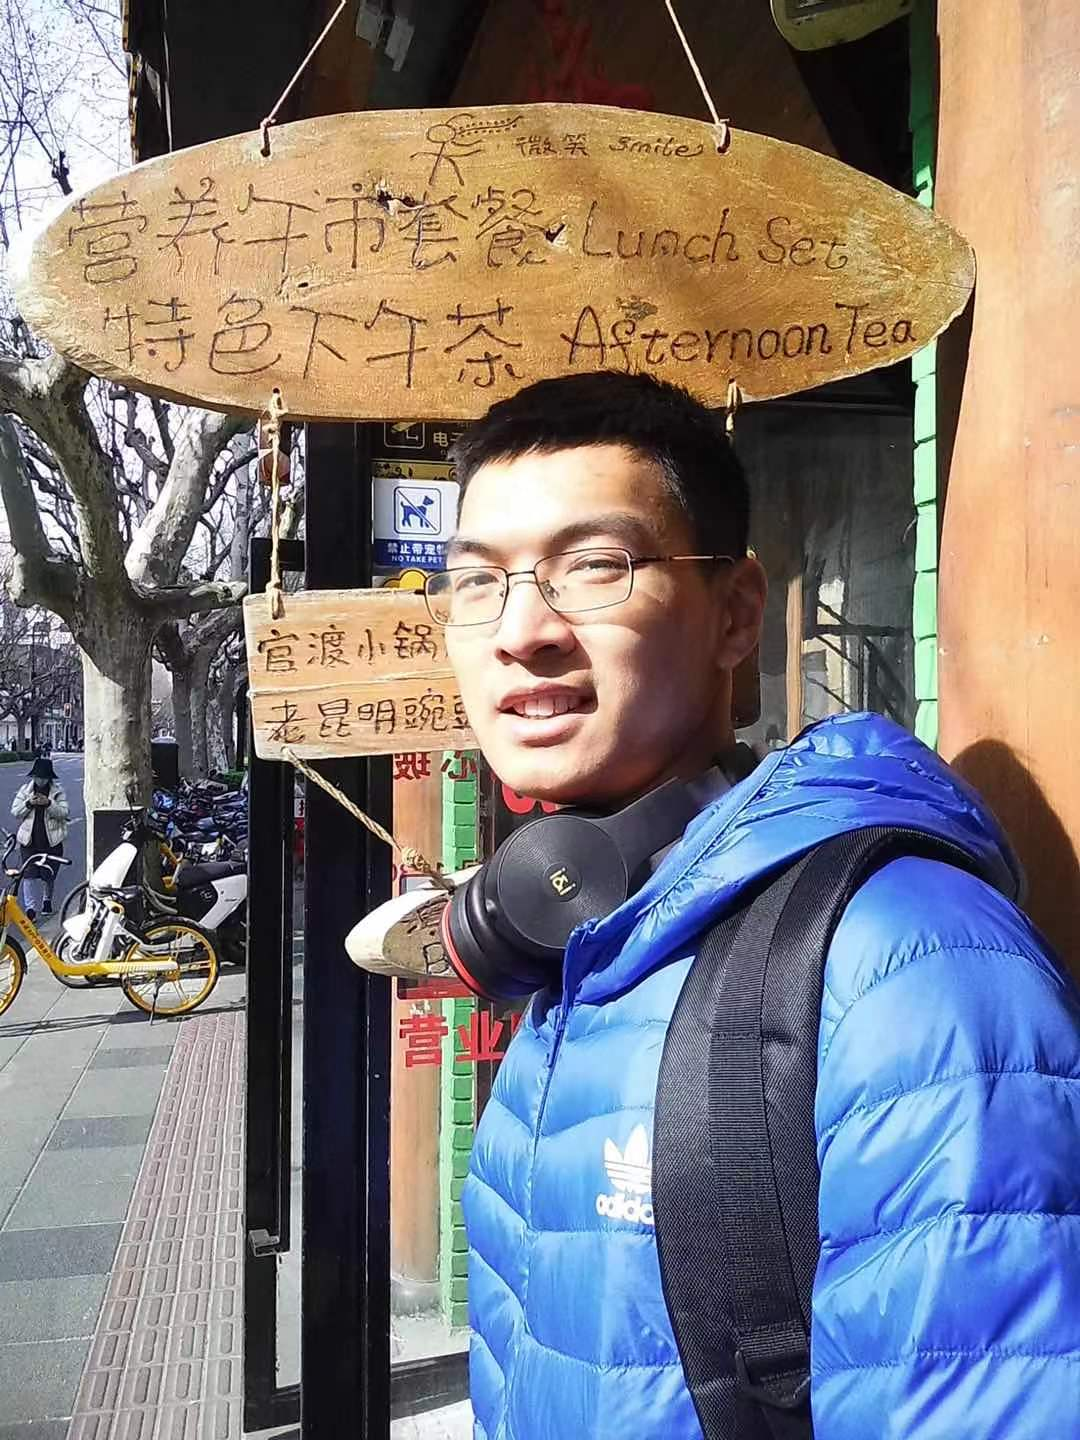 微笑 smile
营养午市套餐 Lunch Set
特色下午茶 Afternoon Tea
电子
禁止带宠物
NO TAKE PET
官渡小锅
老昆明豌豆
营业
adidas